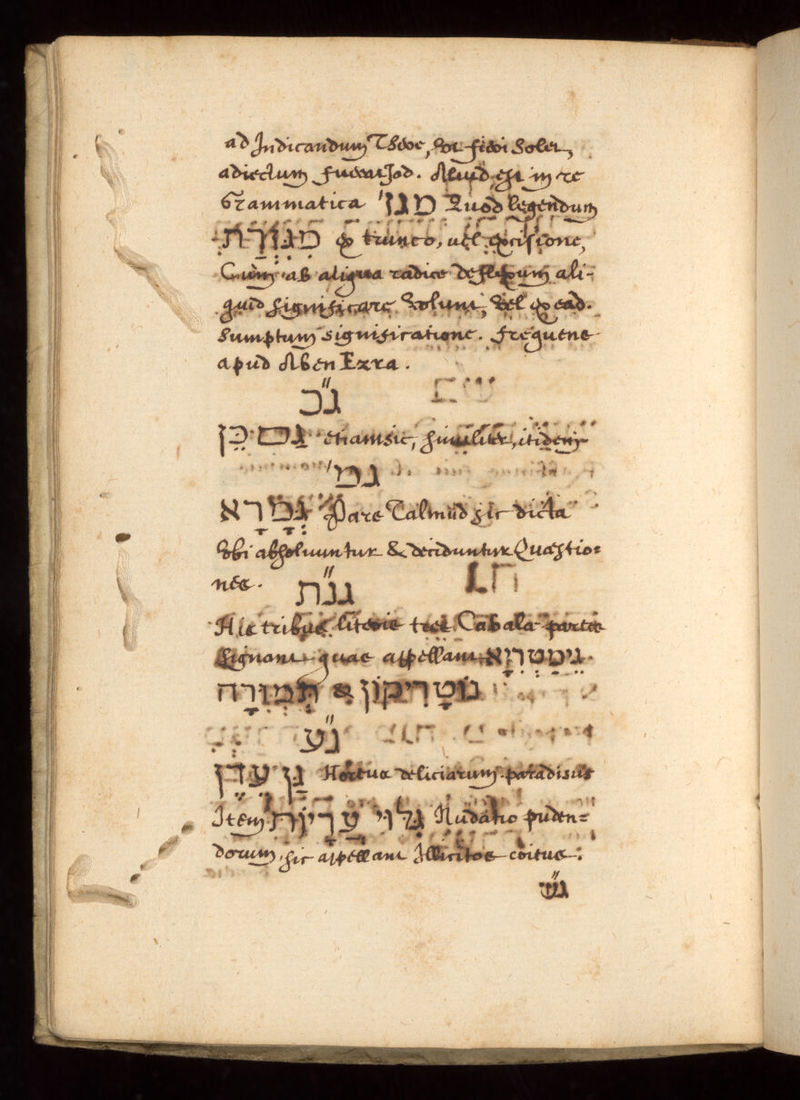 ad Indicandum Tseve, vt fieri solet,
adiectum fuerat Jod. Aliud est in re
Grammatica מגז' Quod legendum
מגזרת ex trunco, uel excisione,
Cum ab aliqua radice deflexum ali-
quid significare volunt, vel ex ead.
sumptum significatione. frequens
apud Aben Ezra.
ג״כ
גם כן etiamsic, similiter, itidem
גמ'
גמרא Pars Talmud sic dicta
vbi absoluuntur & deciduntur Quæstio=
nes.
גנ״ת
His tribus literis tres Cabalæ partes
signant quae appellant גימטריא
נוטריקון & תמורה
ג״ע
גן עדן Hortus deliciarum paradisus
Item גלוי עריות Nudatio puden=
dorum, sic appellant Illicitos coitus:
ג״ש